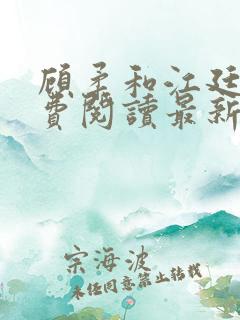 顾柔和江廷
费閱讀最新
宗海波
未经同意禁止转载